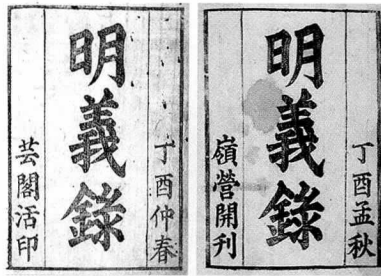 丁酉仲春
明義錄
芸閣活印
丁酉孟秋
明義錄
嶺營開刊